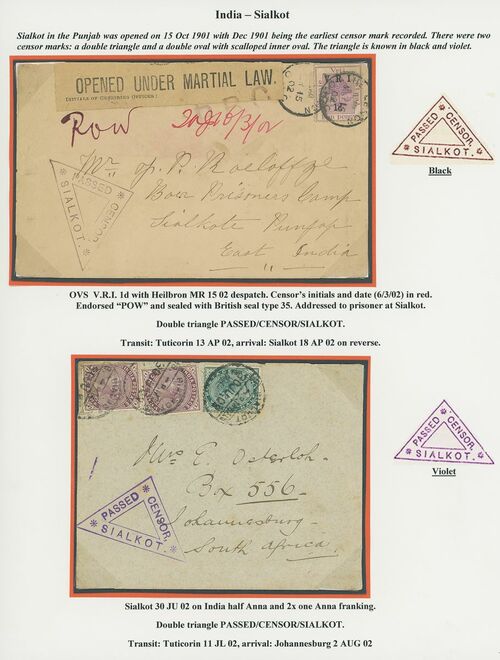 India – Sialkot
Sialkot in the Punjab was opened on 15 Oct 1901 with Dec 1901 being the earliest censor mark recorded. There were two
censor marks: a double triangle and a double oval with scalloped inner oval. The triangle is known in black and violet.
OPENED UNDER MARTIAL LAW.
POW
6/3/02
Mr
Boer Prisoners Camp
Sialkote Punjap
East India
PASSED CENSOR
SIALKOT.
PASSED CENSOR.
SIALKOT.
Black
OVS V.R.I. 1d with Heilbron MR 15 02 despatch. Censor's initials and date (6/3/02) in red.
Endorsed “POW” and sealed with British seal type 35. Addressed to prisoner at Sialkot.
Double triangle PASSED/CENSOR/SIALKOT.
Transit: Tuticorin 13 AP 02, arrival: Sialkot 18 AP 02 on reverse.
Mrs E. Osterloh
Box 556
Johannesburg
South Africa
PASSED CENSOR.
SIALKOT.
PASSED CENSOR.
SIALKOT.
Violet
Sialkot 30 JU 02 on India half Anna and 2x one Anna franking.
Double triangle PASSED/CENSOR/SIALKOT.
Transit: Tuticorin 11 JL 02, arrival: Johannesburg 2 AUG 02